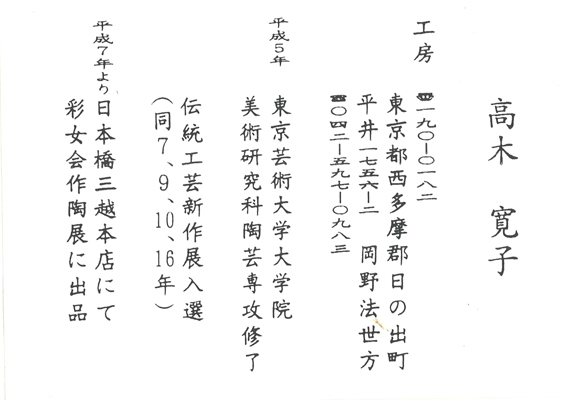 高木 寛子
工房
〒一九〇-〇一八二
東京都西多摩郡日の出町
平井一七五六-二 岡野法世方
☎〇四二-五九七-〇九八三
平成5年
東京芸術大学大学院
美術研究科陶芸専攻修了
伝統工芸新作展入選
(同7、9、10、16年)
平成7年より
日本橋三越本店にて
彩女会作陶展に出品